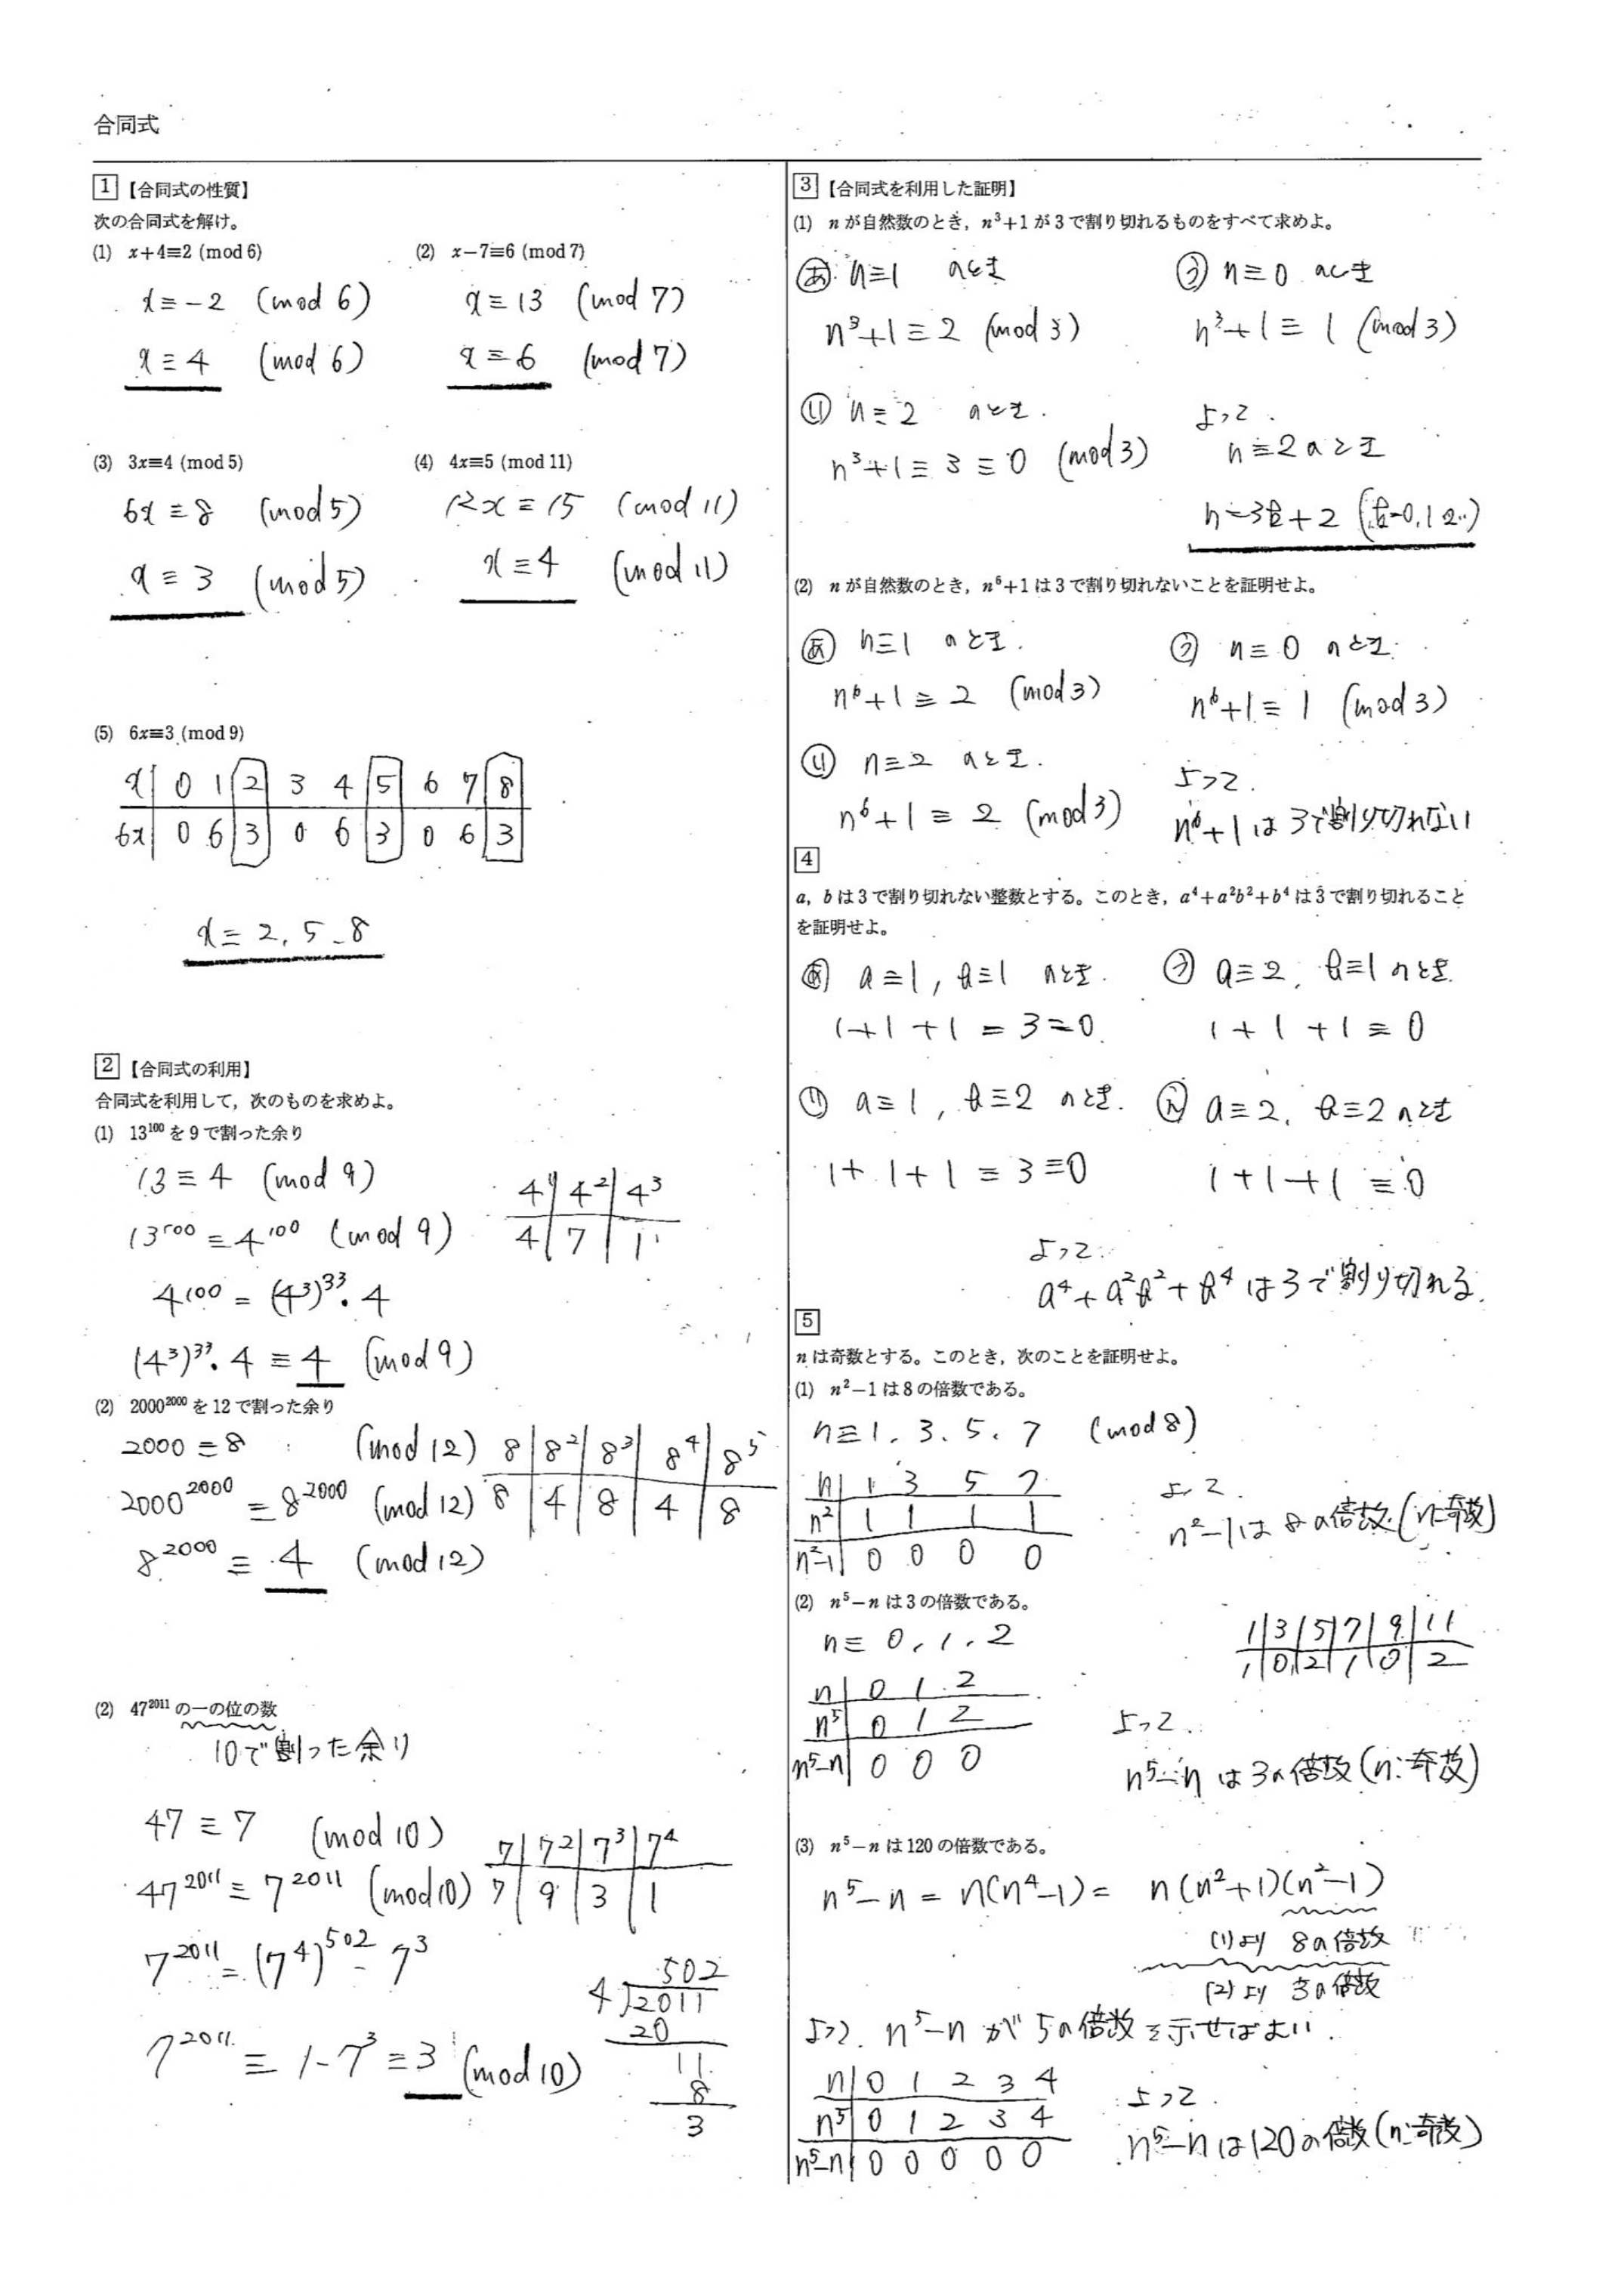 合同式
1 【合同式の性質】
次の合同式を解け。
(1) x+4≡2 (mod 6)
x≡-2 (mod 6)
x≡4 (mod 6)
(2) x-7≡6 (mod 7)
x≡13 (mod 7)
x≡6 (mod 7)
(3) 3x≡4 (mod 5)
6x≡8 (mod 5)
x≡3 (mod 5)
(4) 4x≡5 (mod 11)
12x≡15 (mod 11)
x≡4 (mod 11)
(5) 6x≡3 (mod 9)
x 0 1 2 3 4 5 6 7 8
6x 0 6 3 0 6 3 0 6 3
x≡2, 5, 8
2 【合同式の利用】
合同式を利用して,次のものを求めよ。
(1) 13¹⁰⁰を9で割った余り
13≡4 (mod 9)
13¹⁰⁰≡4¹⁰⁰ (mod 9)
4¹⁰⁰=(4³)³³·4
(4³)³³·4≡4 (mod 9)
4¹ 4² 4³
4 7 1
(2) 2000²⁰⁰⁰を12で割った余り
2000≡8 (mod 12)
2000²⁰⁰⁰≡8²⁰⁰⁰ (mod 12)
8²⁰⁰⁰≡4 (mod 12)
8 8² 8³ 8⁴ 8⁵
8 4 8 4 8
(2) 47²⁰¹¹の一の位の数
10で割った余り
47≡7 (mod 10)
47²⁰¹¹≡7²⁰¹¹ (mod 10)
7 7² 7³ 7⁴
7 9 3 1
7²⁰¹¹=(7⁴)⁵⁰²·7³
7²⁰¹¹≡1·7³≡3 (mod 10)
502
4)2011
20
11
8
3
3 【合同式を利用した証明】
(1) nが自然数のとき,n³+1が3で割り切れるものをすべて求めよ。
あ n≡1 のとき
n³+1≡2 (mod 3)
い n≡2 のとき.
n³+1≡3≡0 (mod 3)
う n≡0 のとき
n³+1≡1 (mod 3)
よって.
n≡2のとき
n=3k+2 (k=0,1,2..)
(2) nが自然数のとき,n⁶+1は3で割り切れないことを証明せよ。
あ n≡1 のとき.
n⁶+1≡2 (mod 3)
い n≡2 のとき.
n⁶+1≡2 (mod 3)
う n≡0 のとき.
n⁶+1≡1 (mod 3)
よって.
n⁶+1は3で割り切れない
4
a,bは3で割り切れない整数とする。このとき,a⁴+a²b²+b⁴は3で割り切れること
を証明せよ。
あ a≡1, b≡1 のとき.
1+1+1=3≡0
い a≡1, b≡2 のとき.
1+1+1≡3≡0
う a≡2, b≡1のとき.
1+1+1≡0
え a≡2, b≡2のとき
1+1+1≡0
よって.
a⁴+a²b²+b⁴は3で割り切れる.
5
nは奇数とする。このとき,次のことを証明せよ。
(1) n²-1は8の倍数である。
n≡1, 3, 5, 7 (mod 8)
n 1 3 5 7
n² 1 1 1 1
n²-1 0 0 0 0
よって.
n²-1は 8の倍数 (n:奇数)
(2) n⁵-nは3の倍数である。
n≡0, 1, 2
n 0 1 2
n⁵ 0 1 2
n⁵-n 0 0 0
1 3 5 7 9 11
1 0 2 1 0 2
よって.
n⁵-nは3の倍数(n:奇数)
(3) n⁵-nは120の倍数である。
n⁵-n=n(n⁴-1)=n(n²+1)(n²-1)
(1)より 8の倍数
(2)より 3の倍数
よって. n⁵-nが5の倍数を示せばよい.
n 0 1 2 3 4
n⁵ 0 1 2 3 4
n⁵-n 0 0 0 0 0
よって.
n⁵-nは120の倍数(n:奇数)